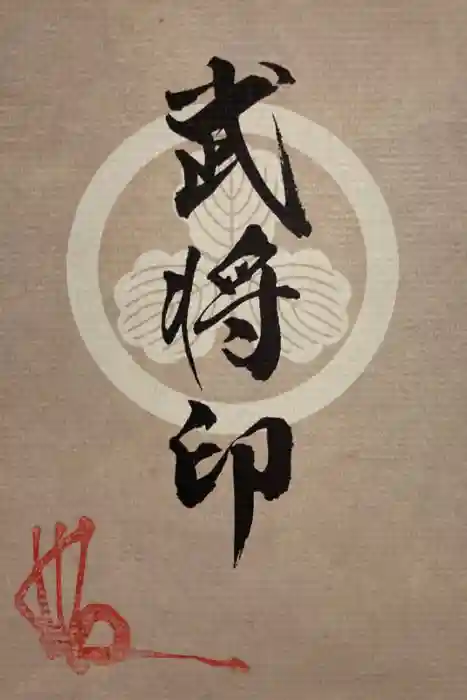 武将印